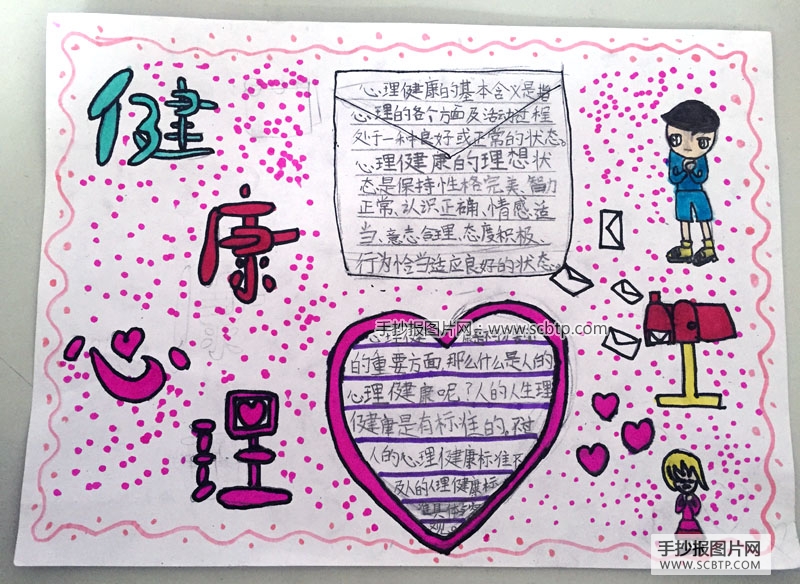 健
康
心
理
心理健康的基本含义是指
心理的各个方面及活动过程
处于一种良好或正常的状态。
心理健康的理想状
态是保持性格完美、智力
正常、认识正确、情感适
当、意志合理、态度积极、
行为恰当适应良好的状态。
手抄报图片网:www.scbtp.com
心理健
的重要方面那么什么是人的
心理健康呢?人的人生理
健康是有标准的。不过
人的心理健康标准不
及人的心理健康标
准具体
手抄报图片网
WWW.SCBTP.COM